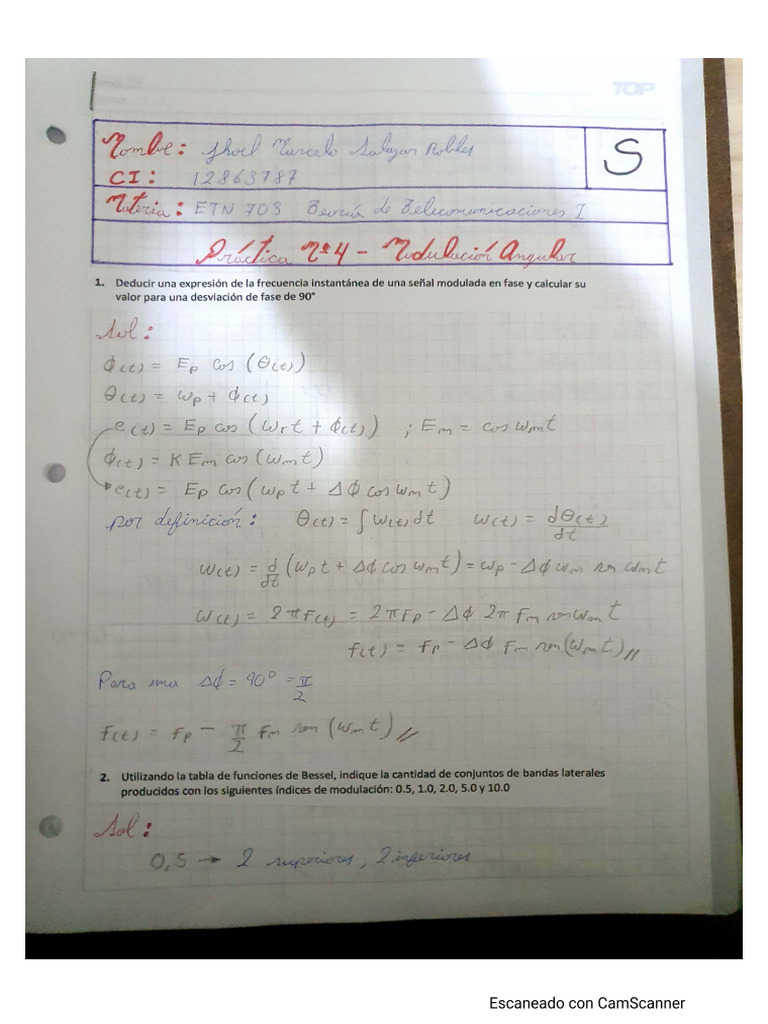 TOP
Nombre: Jhoel Marcelo Salazar Robles
S
CI: 12863787
Materia: ETN 703 Teoría de Telecomunicaciones I
Práctica Nº4 - Modulación Angular
1. Deducir una expresión de la frecuencia instantánea de una señal modulada en fase y calcular su
valor para una desviación de fase de 90°
Sol:
ϕ(t) = Ep cos (θ(t))
θ(t) = ωp + ϕ(t)
e(t) = Ep cos (ωrt + ϕ(t)) ; Em = cos ωmt
ϕ(t) = K Em cos (ωmt)
e(t) = Ep cos (ωpt + Δϕ cos ωmt)
por definición: θ(t) = ∫ω(t) dt ω(t) = dθ(t)/dt
ω(t) = d/dt (ωpt + Δϕ cos ωmt) = ωp - Δϕ ωm sen ωmt
ω(t) = 2πf(t) = 2πfp - Δϕ 2π fm sen ωmt
f(t) = fp - Δϕ fm sen(ωmt)//
Para una Δϕ = 90° = π/2
f(t) = fp - π/2 fm sen (ωmt)//
2. Utilizando la tabla de funciones de Bessel, indique la cantidad de conjuntos de bandas laterales
producidos con los siguientes índices de modulación: 0.5, 1.0, 2.0, 5.0 y 10.0
Sol:
0,5 → 2 superiores, 2 inferiores
Escaneado con CamScanner